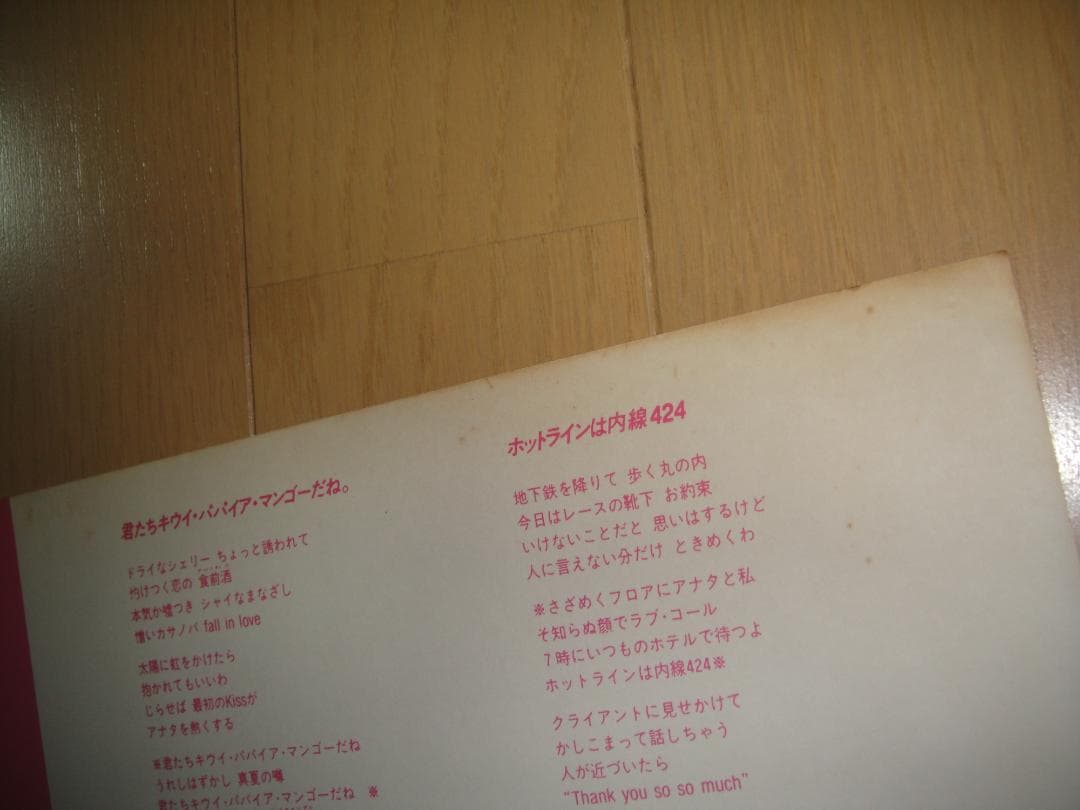 君たちキウイ・パパイア・マンゴーだね。
ドライなシェリー ちょっと誘われて
灼けつく恋の 食前酒
本気か嘘つき シャイなまなざし
憎いカサノバ fall in love
太陽に虹をかけたら
抱かれてもいいわ
じらせば 最初のKissが
アナタを熱くする
※君たちキウイ・パパイア・マンゴーだね
うれしはずかし 真夏の噂
君たちキウイ・パパイア・マンゴーだね ※
ホットラインは内線424
地下鉄を降りて 歩く丸の内
今日はレースの靴下 お約束
いけないことだと 思いはするけど
人に言えない分だけ ときめくわ
※さざめくフロアにアナタと私
そ知らぬ顔でラブ・コール
7時にいつものホテルで待つよ
ホットラインは内線424※
クライアントに見せかけて
かしこまって話しちゃう
人が近づいたら
“Thank you so so much”